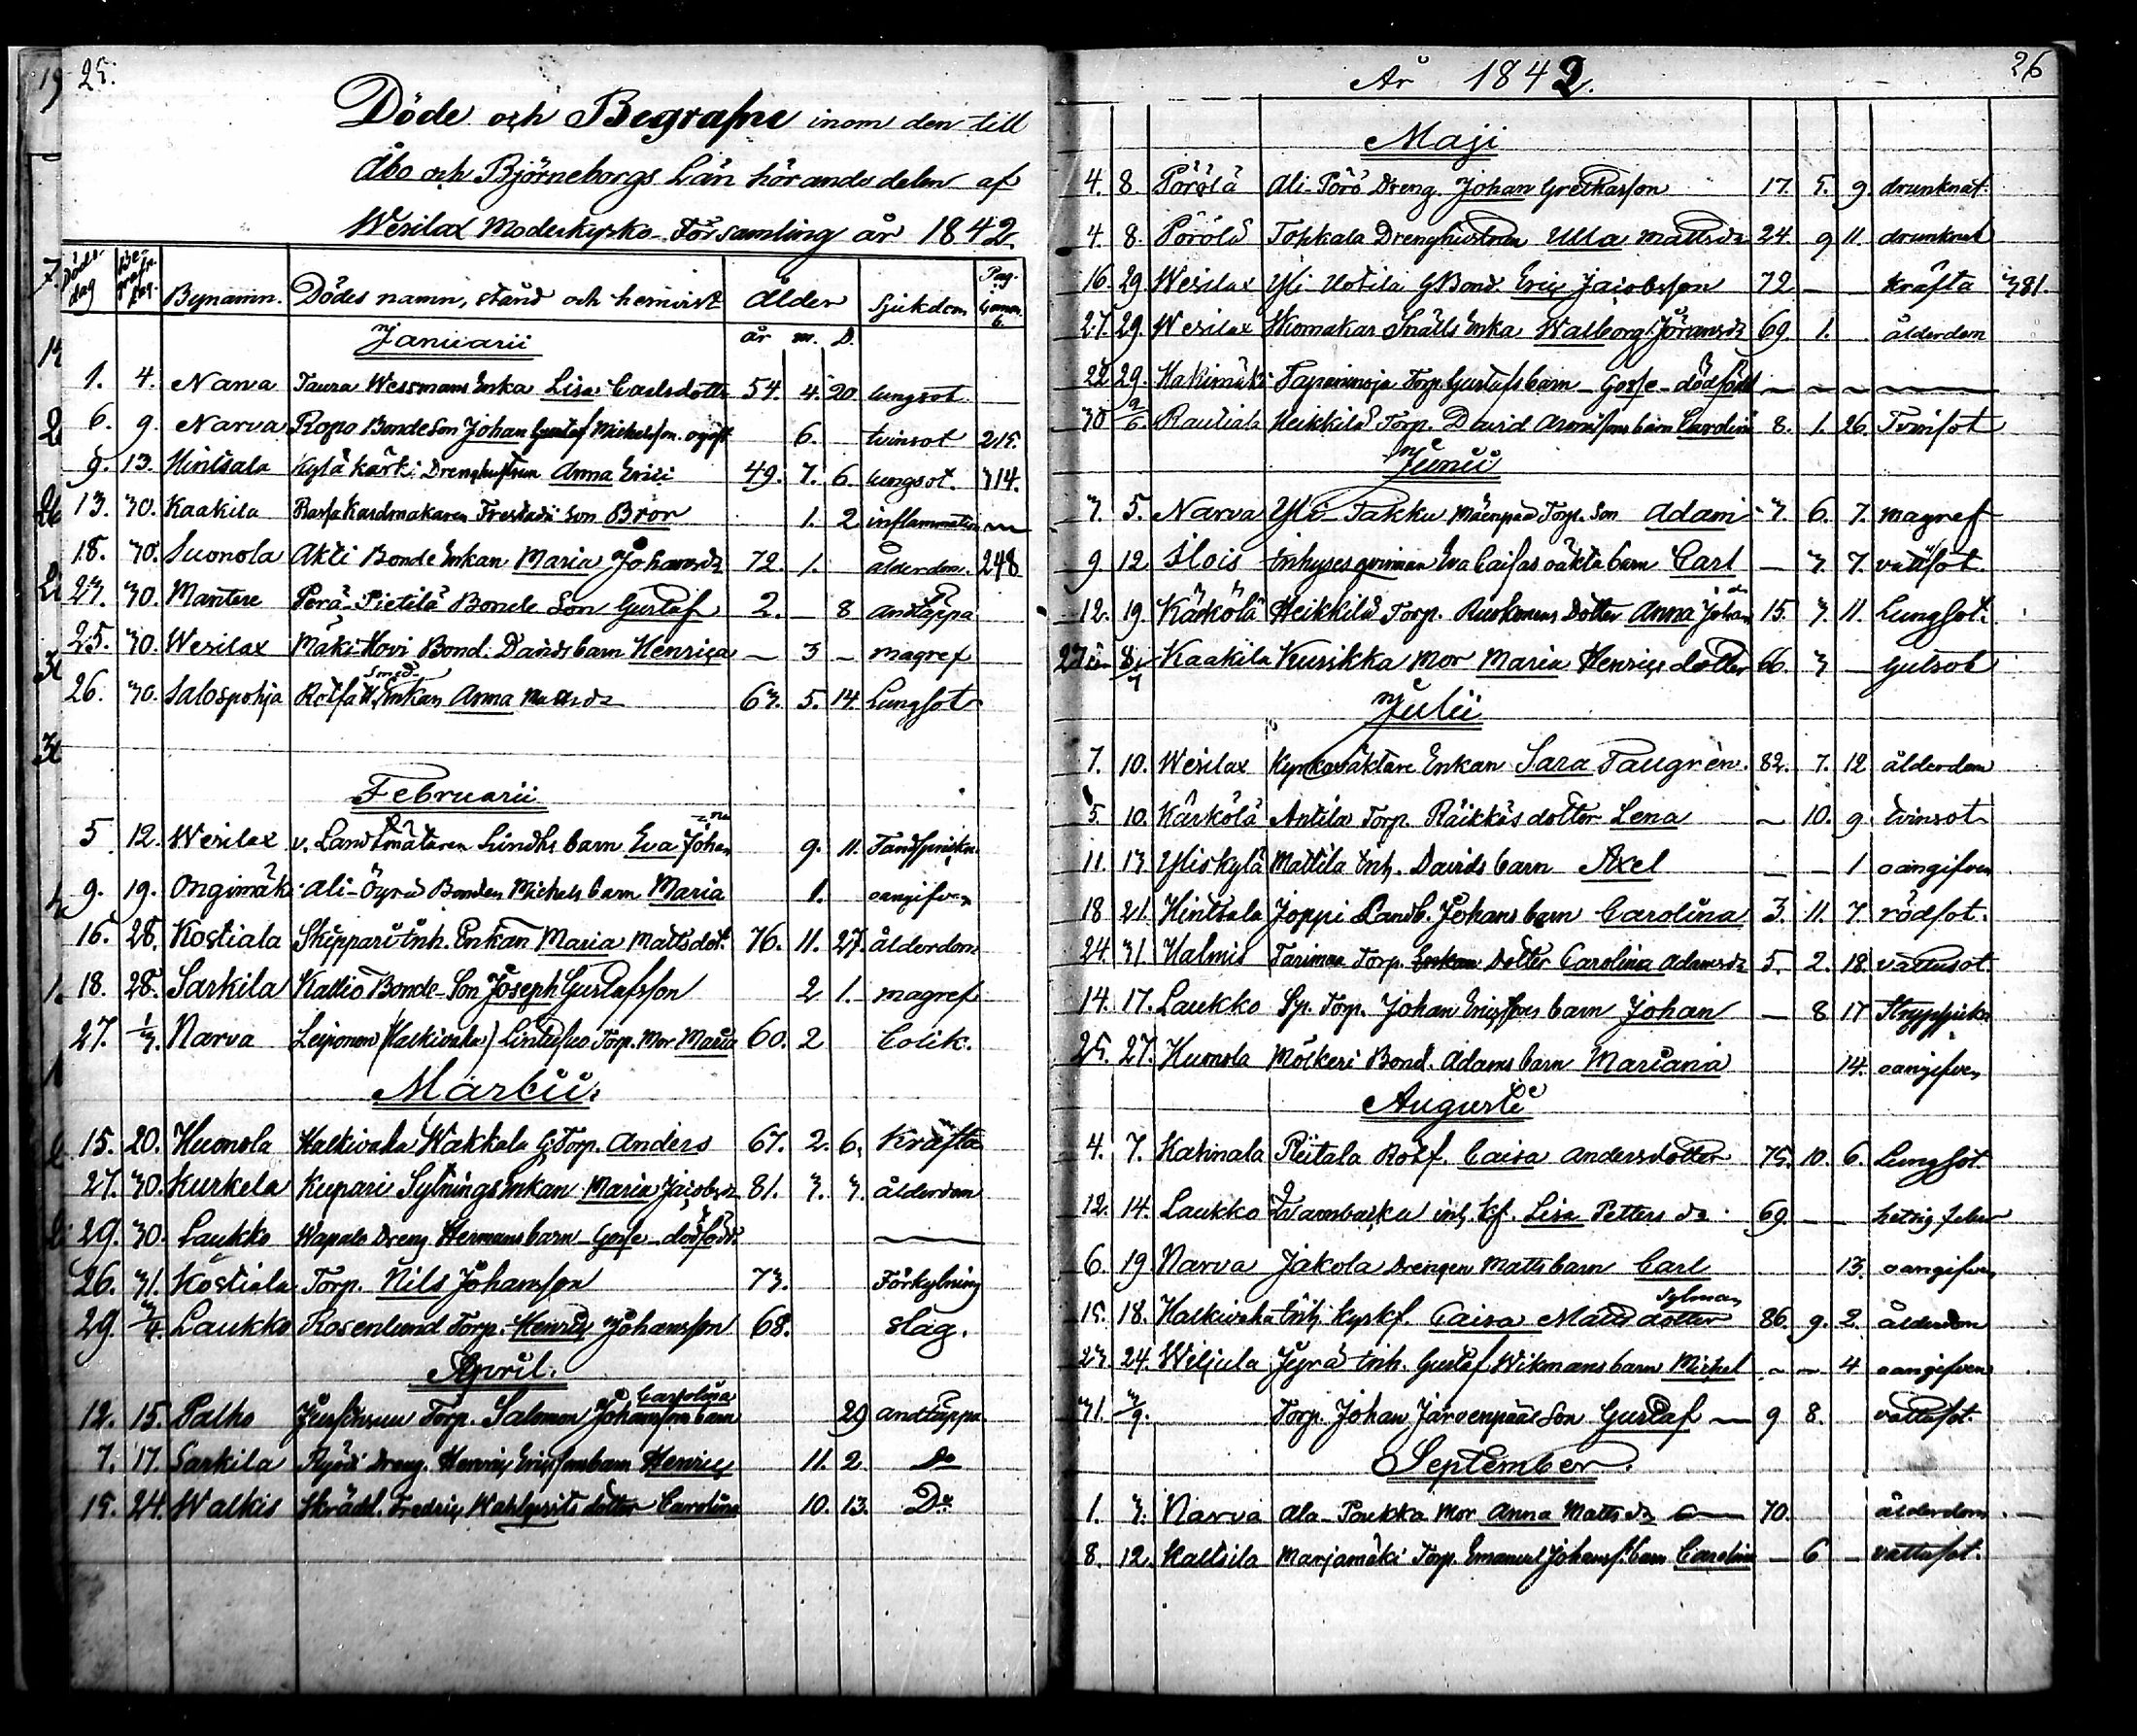 25.
Döde och Begrafne inom den till
Åbo och Björneborgs Län hörande delen af
Wesilax Moderkyrko-Församling år 1842.
Döds-dag Begrafn. dag. Bynamn. Dödes namn, stånd och hemvist Ålder Sjukdom Pag.
Januarii år m. D.
1. 4. Narva Taura Wessmans Enka Lisa Carlsdotter 54. 4. 20. lungsot
6. 9. Narva Ropo Bonde Son Johan Gustaf Michelsson 6. tvinsot 215.
9. 13. Hintsala Kylä karki Drenghustrun Anna Erici 49. 7. 6. lungsot. 314.
13. 30. Kaakila Kardmakaren Son Bror 1. 2 inflammation
18. 30. Suonola Akti Bonde Enkan Maria Johansdr 72. 1. ålderdom. 248
23. 30. Mantere Perä-Pietilä Bonde Son Gustaf 2. — 8 andtäppa
25. 30. Wesilax Mäki-Hovi Bond. Davids barn Henrica — 3 — magref
26. 30. Salospohja Smed Enkan Anna Mattsdr 63. 5. 14. Lungsot
Februarii
5 12. Wesilax v. Landtmätaren Lindhs barn Eva Johanna 9. 11.
9. 19. Ongimäki Ali-Öyrä Bonden Michels barn Maria 1. oangifven
16. 28. Kostiala Skippari Inh. Enkan Maria Mattsdot. 76. 11. 27. ålderdom
18. 28. Sarkila Kallio Bonde-Son Joseph Gustafsson 2 1. magref
27. 1/3. Narva (Halkivaha) Torp. Mor Maria 60. 2 Colik.
Martii.
15. 20. Huonola Halkivaha Wakkala G. Torp. Anders 67. 2. 6. Kräfta
27. 30. Kurkela Kupari Sytnings Enkan Maria Jacobsdr 81. 3. 3. ålderdom
29. 30. Laukko Wapalo Dreng Hermans barn Gosse dödfödd.
26. 31. Kostiala Torp. Nils Johansson 73. Förkylning
29. 3/4. Laukko Rosenlund Torp. Henric Johansson 68. slag.
April.
12. 15. Palho Torp. Salomon Johanssons barn Carolina 29 andtäppa
7. 17. Sarkila Dreng. Henric Ericssons barn Henric 11. 2. Do
15. 24. Walkis Skrädd. Fredric dotter Carolina 10. 13. Do
År 1842. 26
Maji
4. 8. Pörölä Ali-Pörö Dreng. Johan 17. 5. 9. drunknat.
4. 8. Pörölä Topkala Drenghustrun Ulla Mattsdr 24. 9 11. drunknat
16. 29 Wesilax Yli-Uotila G Bond. Eric Jacobsson 72. — kräfta 381.
27. 29. Wesilax Skomakar Snälls Enka Walborg Jöransdr 69. 1. ålderdom
22 29. Hakimäki Torp. Gustafs barn Gosse dödfödt
30 9/6. Rautiala Heikkilä Torp. David barn Carolina 8. 1. 26. Tvinsot
Junii
3. 5. Narva Yli-Takku Mäenpää Torp. Son Adam 3. 6. 7. magref
9 12 Ilois Inhysesqvinnan Eva Caisas oäkta barn Carl — 3. 7. vattusot
12. 19. Kärkölä Heikkilä Torp. Dotter Anna Johansdr 15. 3. 11. Lungsot.
8/7 Kaakila Kusikka Mor Maria Henrics dotter 66. 3 — Gulsot
Julii
7. 10. Wesilax Kyrkoväktare Enkan Sara Taugrén 82. 7. 12 ålderdom
5. 10. Kärkölä Antila Torp. Räikkäs dotter Lena — 10. 9. tvinsot
11. 13 Yliskylä Mattila Inh. Davids barn Axel — — 1 oangifven
18 21. Hintsala Joppi Landb. Johans barn Carolina 3. 11. 7. rödsot.
24. 31 Halmis Tarimaa Torp. Dotter Carolina Adamsdr 5. 2. 18. vattusot.
14. 17. Laukko Sp. Torp. Johan Ericssons barn Johan — 8 17 Strypsjuka
25. 27. Huonola Mölkeri Bond. Adams barn Mariana 14. oangifven
Augusti
4. 7. Katinala Pietala Caisa Andersdotter 75. 10. 6. Lungsot.
12. 14. Laukko inh. Lisa Petters dr 69 — — hetsig feber
6. 19 Narva Jakola Drengen Matts barn Carl 13. oangifven
15. 18. Halkivaha Inh. Caisa Matts dotter 86. 9. 2. ålderdom
23. 24. Weljula Jyrä Inh. Gustaf Wikmans barn Michel — — 4 oangifven
31. 4/9. Torp. Johan Järvenpääs Son Gustaf — 9 8. vattusot.
September.
1. 3. Narva Ala-Paukka Mor Anna Matts dr 70. ålderdom
8. 12. Kaltsila Marjamäki Torp. Emanuel Johanss. barn Carolina — 6 — vattusot.